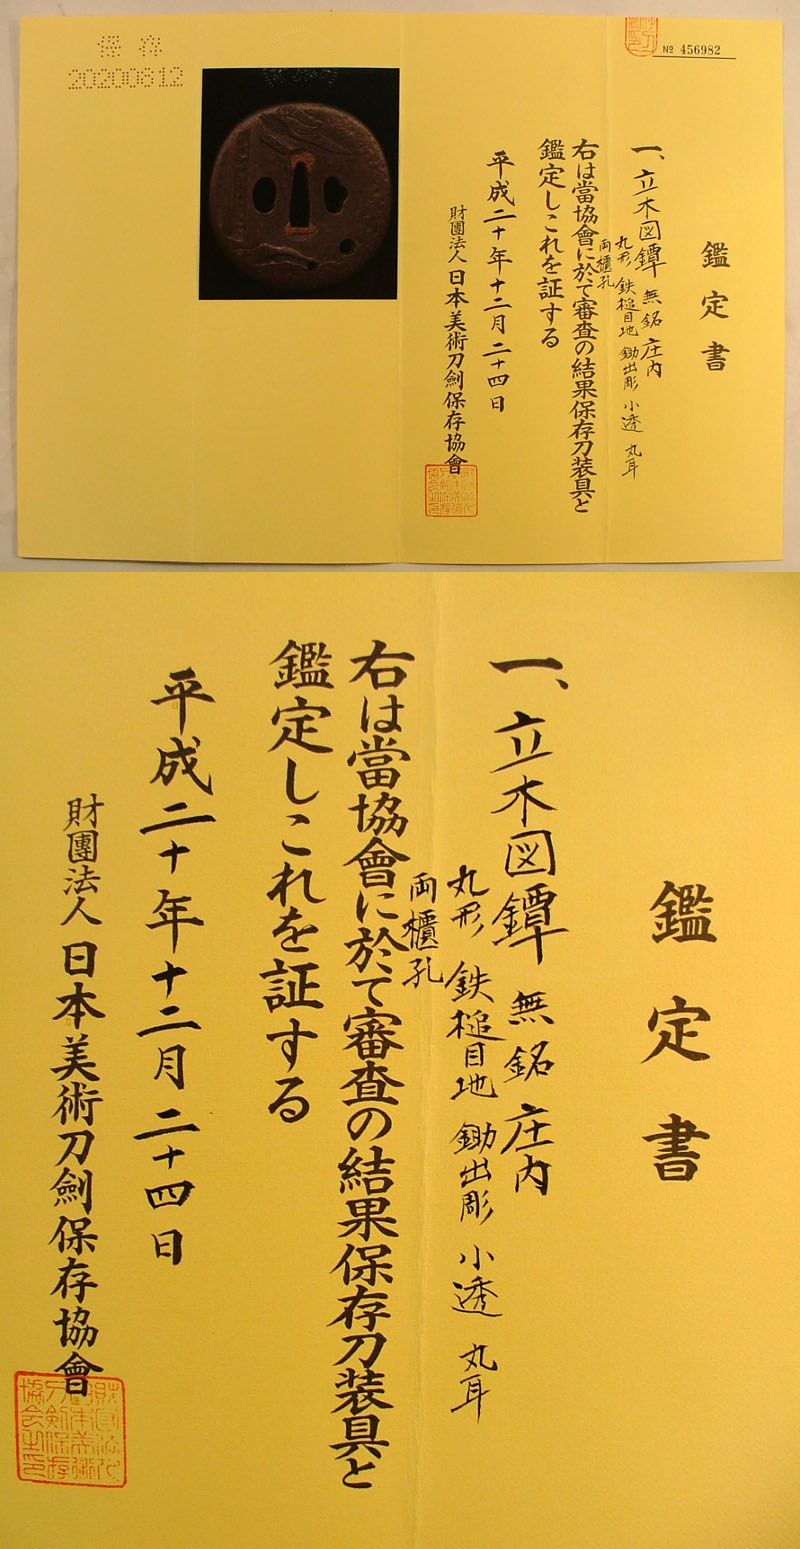 保存
20200812
№ 456982
鑑定書
一、立木図鐔 無銘 庄内
丸形 鉄槌目地 鋤出彫 小透 丸耳
両櫃孔
右は當協會に於て審査の結果保存刀装具と
鑑定しこれを証する
平成二十年十二月二十四日
財團法人日本美術刀劍保存協會
鑑定書
一、立木図鐔 無銘 庄内
丸形 鉄槌目地 鋤出彫 小透 丸耳
両櫃孔
右は當協會に於て審査の結果保存刀装具と
鑑定しこれを証する
平成二十年十二月二十四日
財團法人日本美術刀劍保存協會